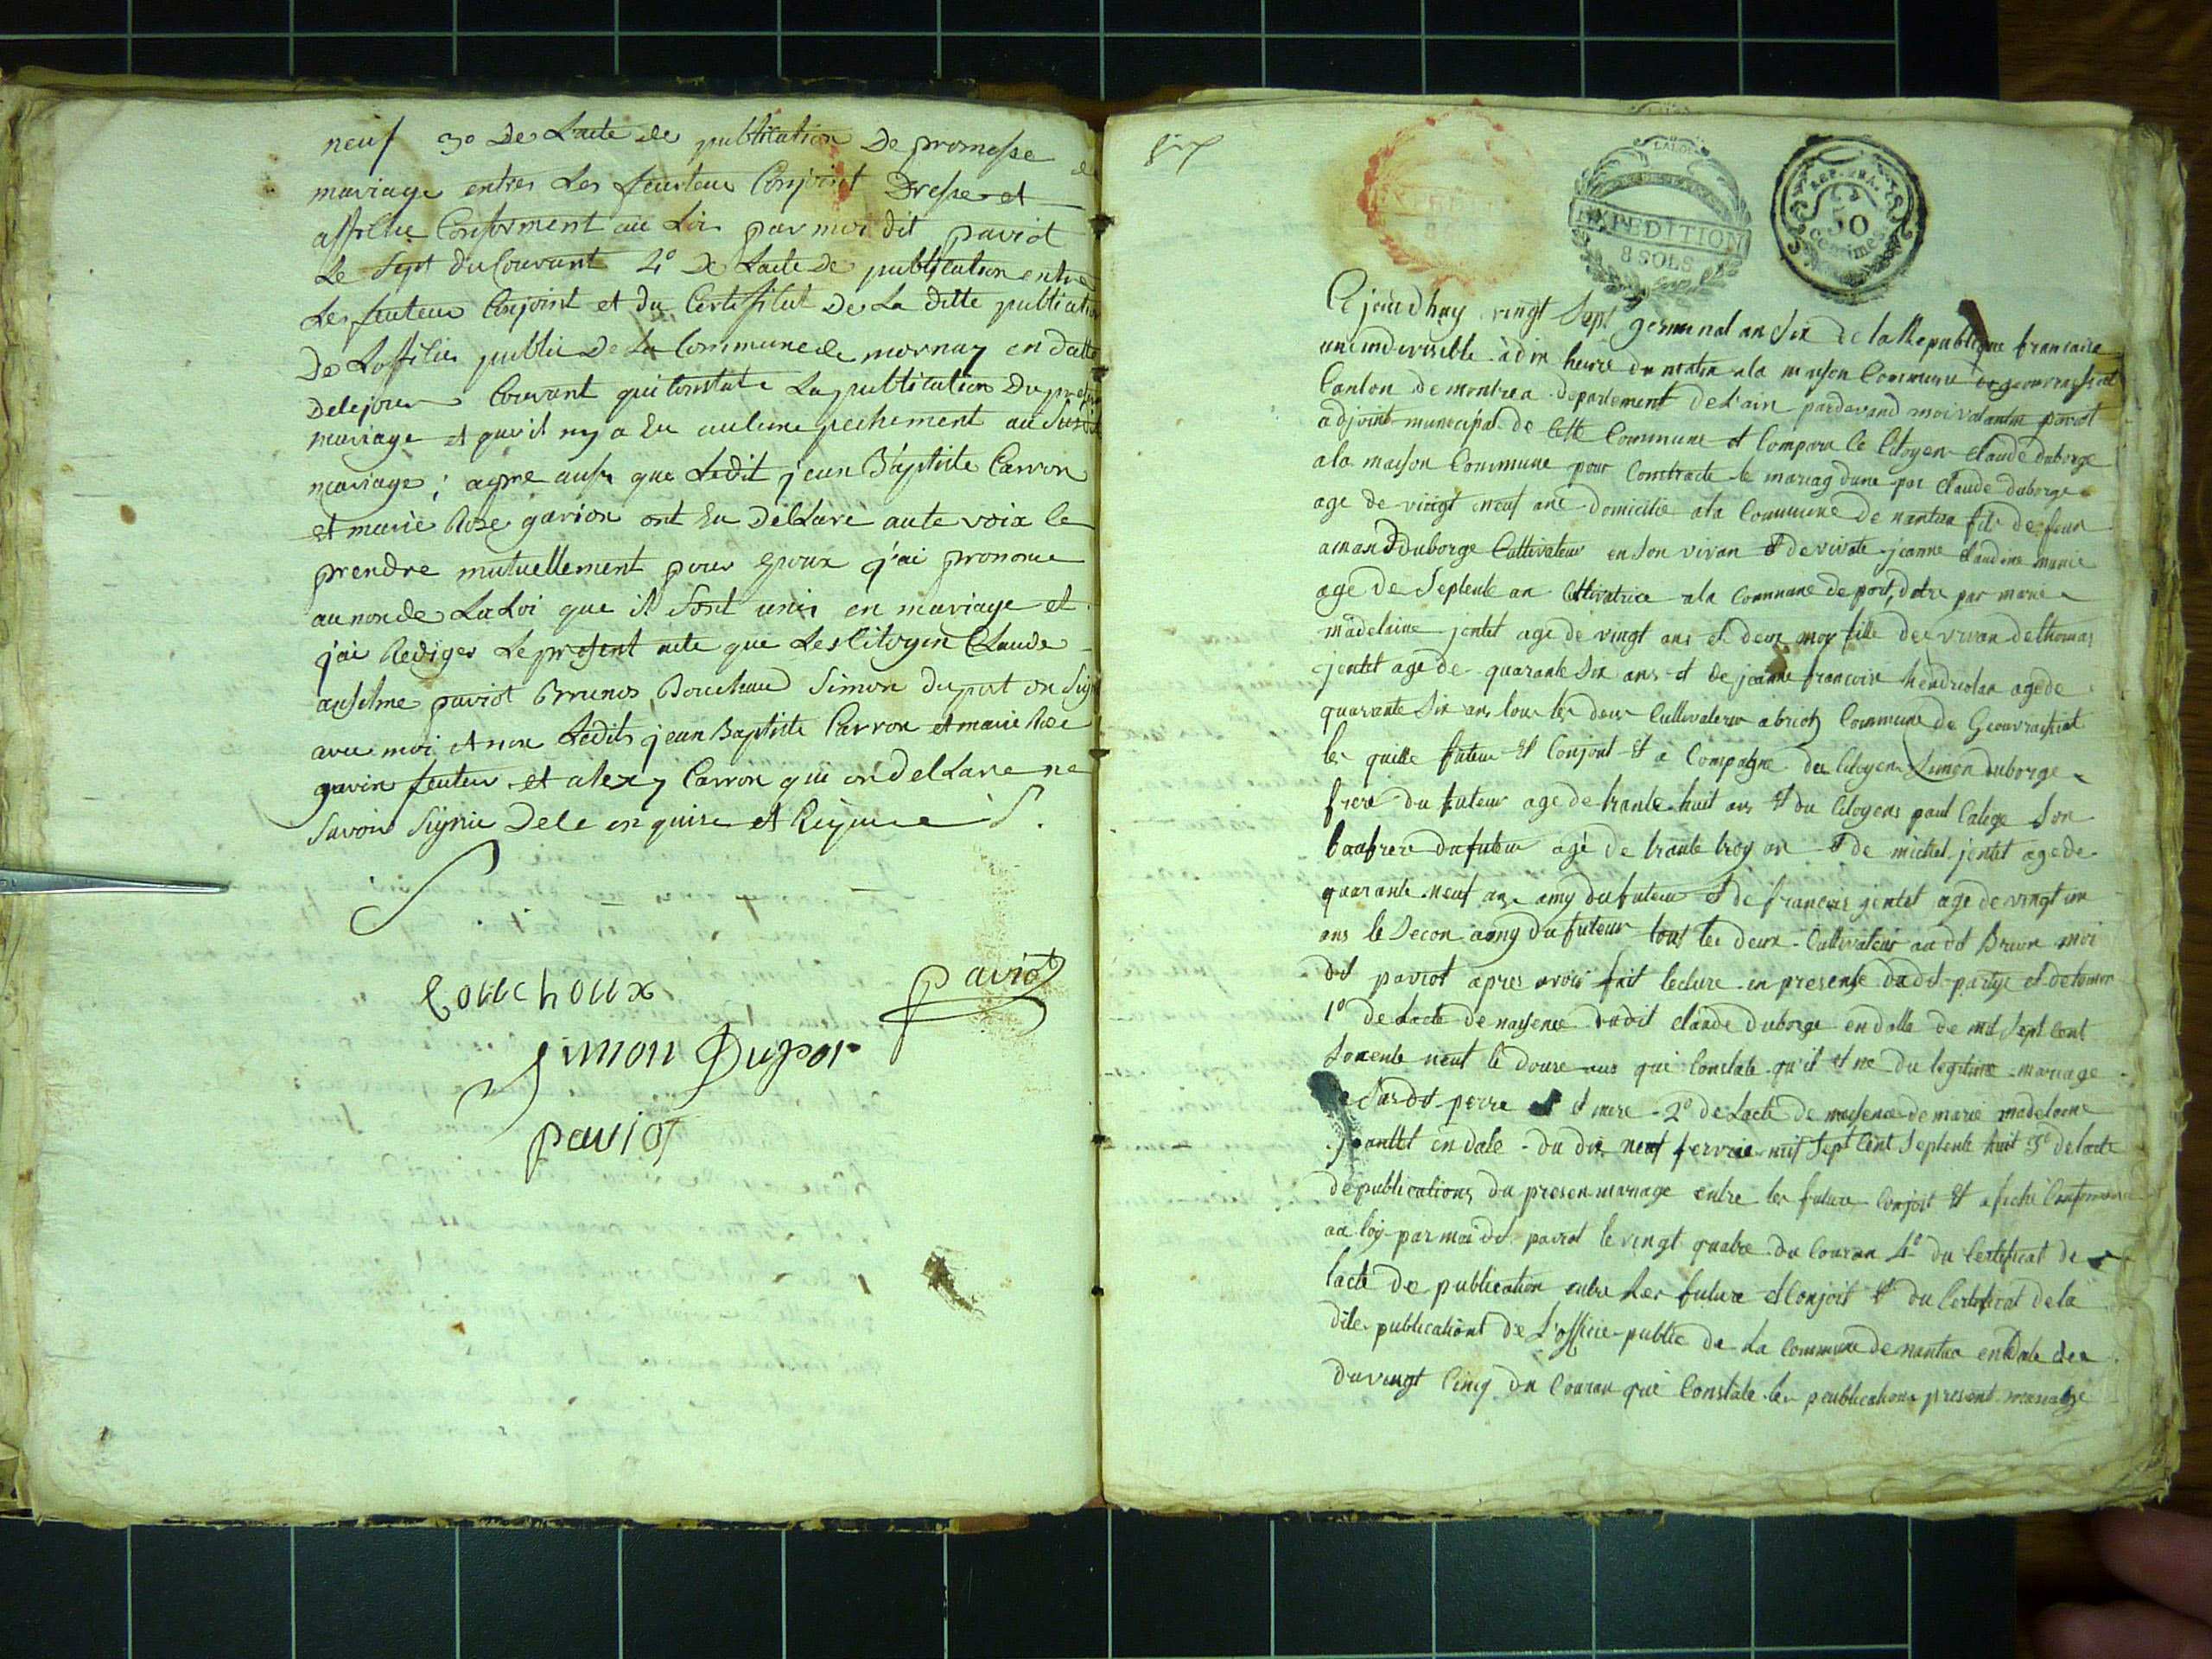 neuf 3o De Lacte de publication De promesse de
mariage entres Les feuteur Conjoint Dresse et
affiche Conforment au Loi par moi dit paviot
Le Sept du Courant 4o De Lacte De publication entre
Les feuteur Conjoint et du Certifilat De La ditte publication
De Loffilier public De La Commune de mornay en datte
Dele jour Courant qui Constate La publication Du present
mariage et quil ny a Eu aucune pechement au Susdit
mariage ; apre ausi que Ledit jean Baptiste Carron
et marie Rose gavion ont Eu Dellare aute voix le
prendre mutuellement pour Epoux j'ai prononce
au non de La Loi que il Sont unis en mariage et
j'ai Rediger Le present acte que Les Citoyen Claude
anselme paviot Brunos Bouchoux Simon duport on Signe
avec moi et non Ledits jean Baptiste Carron et marie Rose
gavin feuteur et alexy Carron qui on dellare ne
Savoir Signie Dele enquire et Require S.
Couchoux
paviot
Simon Dupor
paviot
EXPEDITION
LA LOI
EXPEDITION
8 SOLS
REP. FRA.
50
centimes
Ce jourdhuy vingt Sept germinal an Six de la Republique francaise
une indivisible à dix heure du matin ala maison Commune de geovressiat
Canton de montrea departement de l'ain pardevand moi valantin paviot
adjoint municipal de Cette Commune et Compara le Citoyen claude duborge
ala maison Commune pour Contracte le mariag dune par claude duborge
age de vingt neuf ane domicilie ala Commune de nantua fils de feur
amand duborge Cultivateur en Son vivan et de vivate jeanne Claudine marie
age de Septente an Cultivatrice ala Commune de port, dotre par marie
madelaine jentet age de vingt ans et deux moy fille de vivan de thomas
jentet age de quarante Six ans et de jeanne francoise hendriolan age de
quarante Six ans tous les deux Cultivateur abrion Commune de Geovraissiat
les quelle futeur et Conjont et a Compagne du Citoyen Simon duborge
frere du futeur age de trante huit ans et du Citoyens paul Calege Son
baufrere du futeur agé de trante troy an et de michel jentet age de
quarante neuf ans amy du futeur et de francois gentet age de vingt un
ans le Secon aamy du futeur tous les deux Cultivateur au dit Brion moi
dit paviot apres avoir fait lecture en presense dudit partye et de temoin
1o de Lacte de naisence dudit claude duborge en datte de mil Sept Cent
Soxente neuf le douse mars qui Constate qu'il et ne du legitime mariage
de Susdit perre et mere 2o de Lacte de naissence de marie madeleine
jeantet en date du dix neuf fevrie mil Sept Cent Septente huit 3o de lacte
de publications du presen mariage entre les futeur Conjoit et afiché Conformement
au loy par moi dit paviot le vingt quatre du Couran 4o du Certificat de
lacte de publication entre Les future et Conjoit et du Certificat de la
dite publications de L'officie public de La Commune de nantua en date de
du vingt Cinq du Couran qui Constate les peublications present mariage